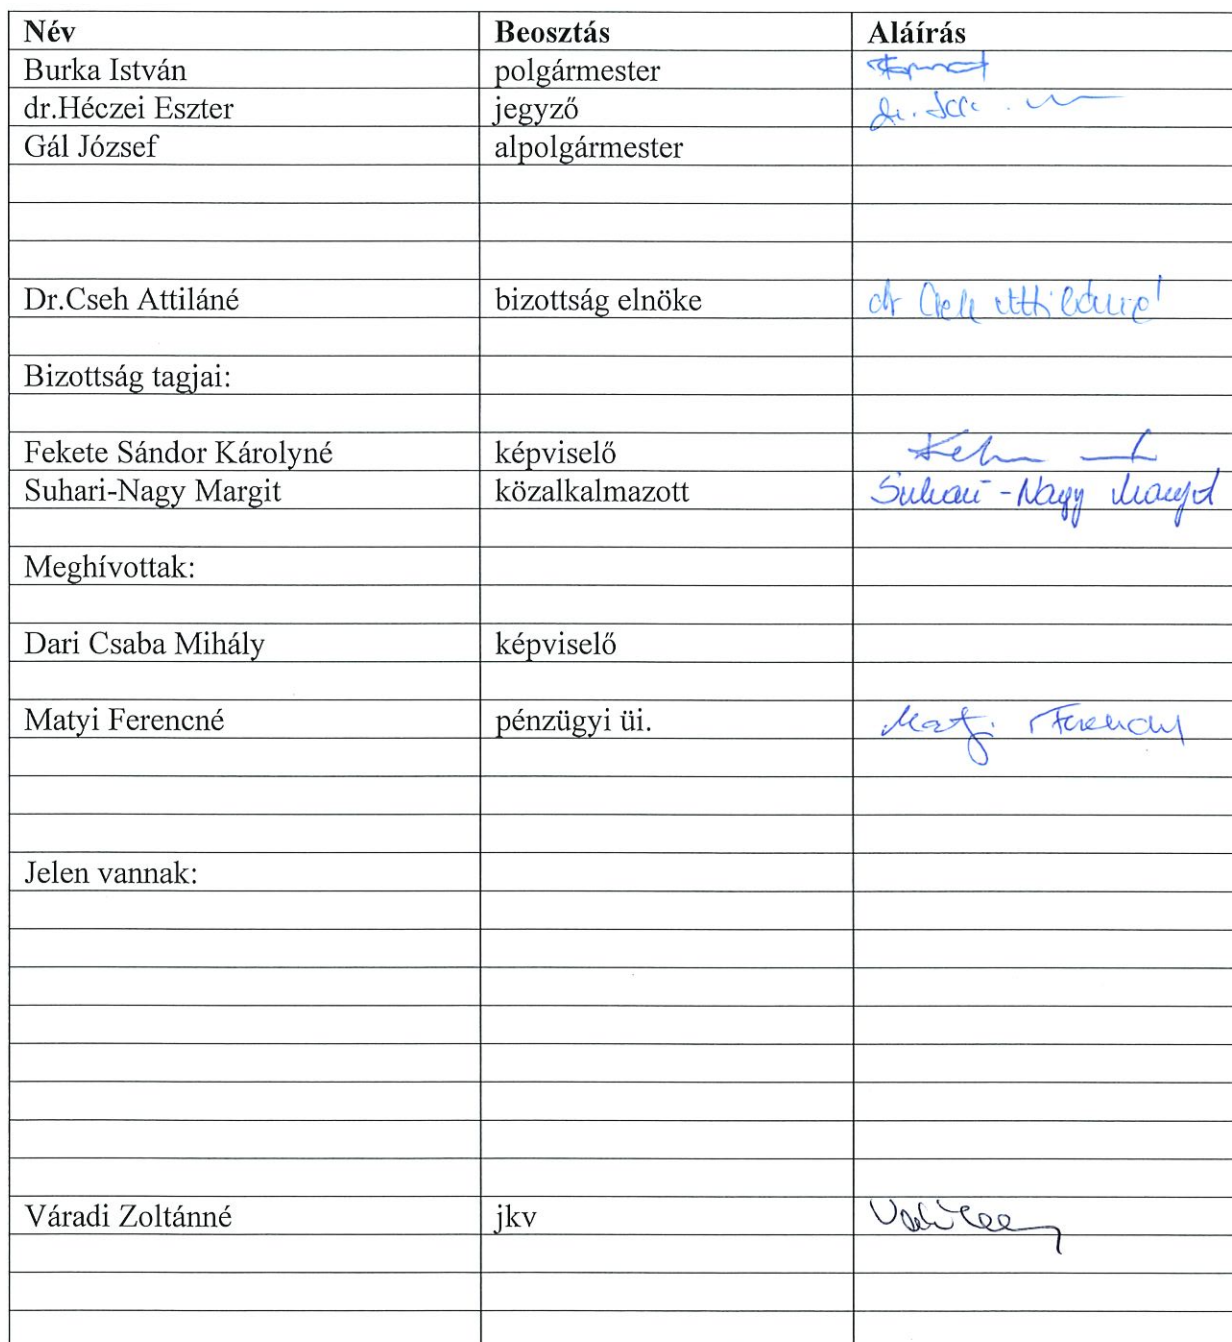 Név Beosztás Aláírás
Burka István polgármester
dr.Héczei Eszter jegyző dr.
Gál József alpolgármester
Dr.Cseh Attiláné bizottság elnöke dr Cseh Attiláné
Bizottság tagjai:
Fekete Sándor Károlyné képviselő
Suhari-Nagy Margit közalkalmazott Suhari-Nagy Margit
Meghívottak:
Dari Csaba Mihály képviselő
Matyi Ferencné pénzügyi üi. Matyi Ferencné
Jelen vannak:
Váradi Zoltánné jkv